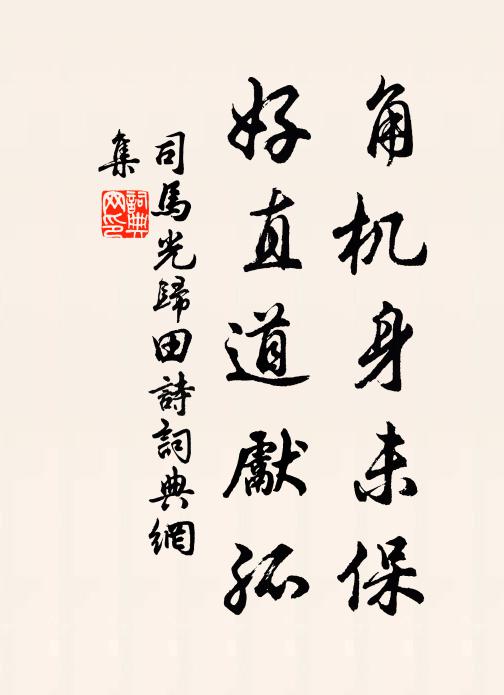 角机身未保
好直道獻孤
司馬光歸田詩詞典網
集
詞典网印